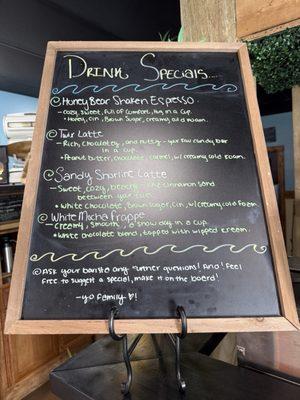 Drink Specials....
Honey Bear Shaken Espresso.
- Cozy, sweet, full of comfort, in a cup.
• Honey, cin, Brown Sugar, creamy cold foam.
Twix Latte
- Rich, chocolatey, and nutty - your fav candy bar
in a cup.
• Peanut butter, chocolate, caramel, w/ creamy cold foam.
Sandy Shoreline Latte
- Sweet, cozy, beachy - like cinnamon sand
between your toes.
• White chocolate, Brown Sugar, Cin, w/ creamy cold foam
White Mocha Frappe
- Creamy, smooth, a snow day in a cup.
• White chocolate blend, topped with whipped cream.
Ask your barista any further questions! And! Feel
free to suggest a special, make it on the board!
- yo Family !